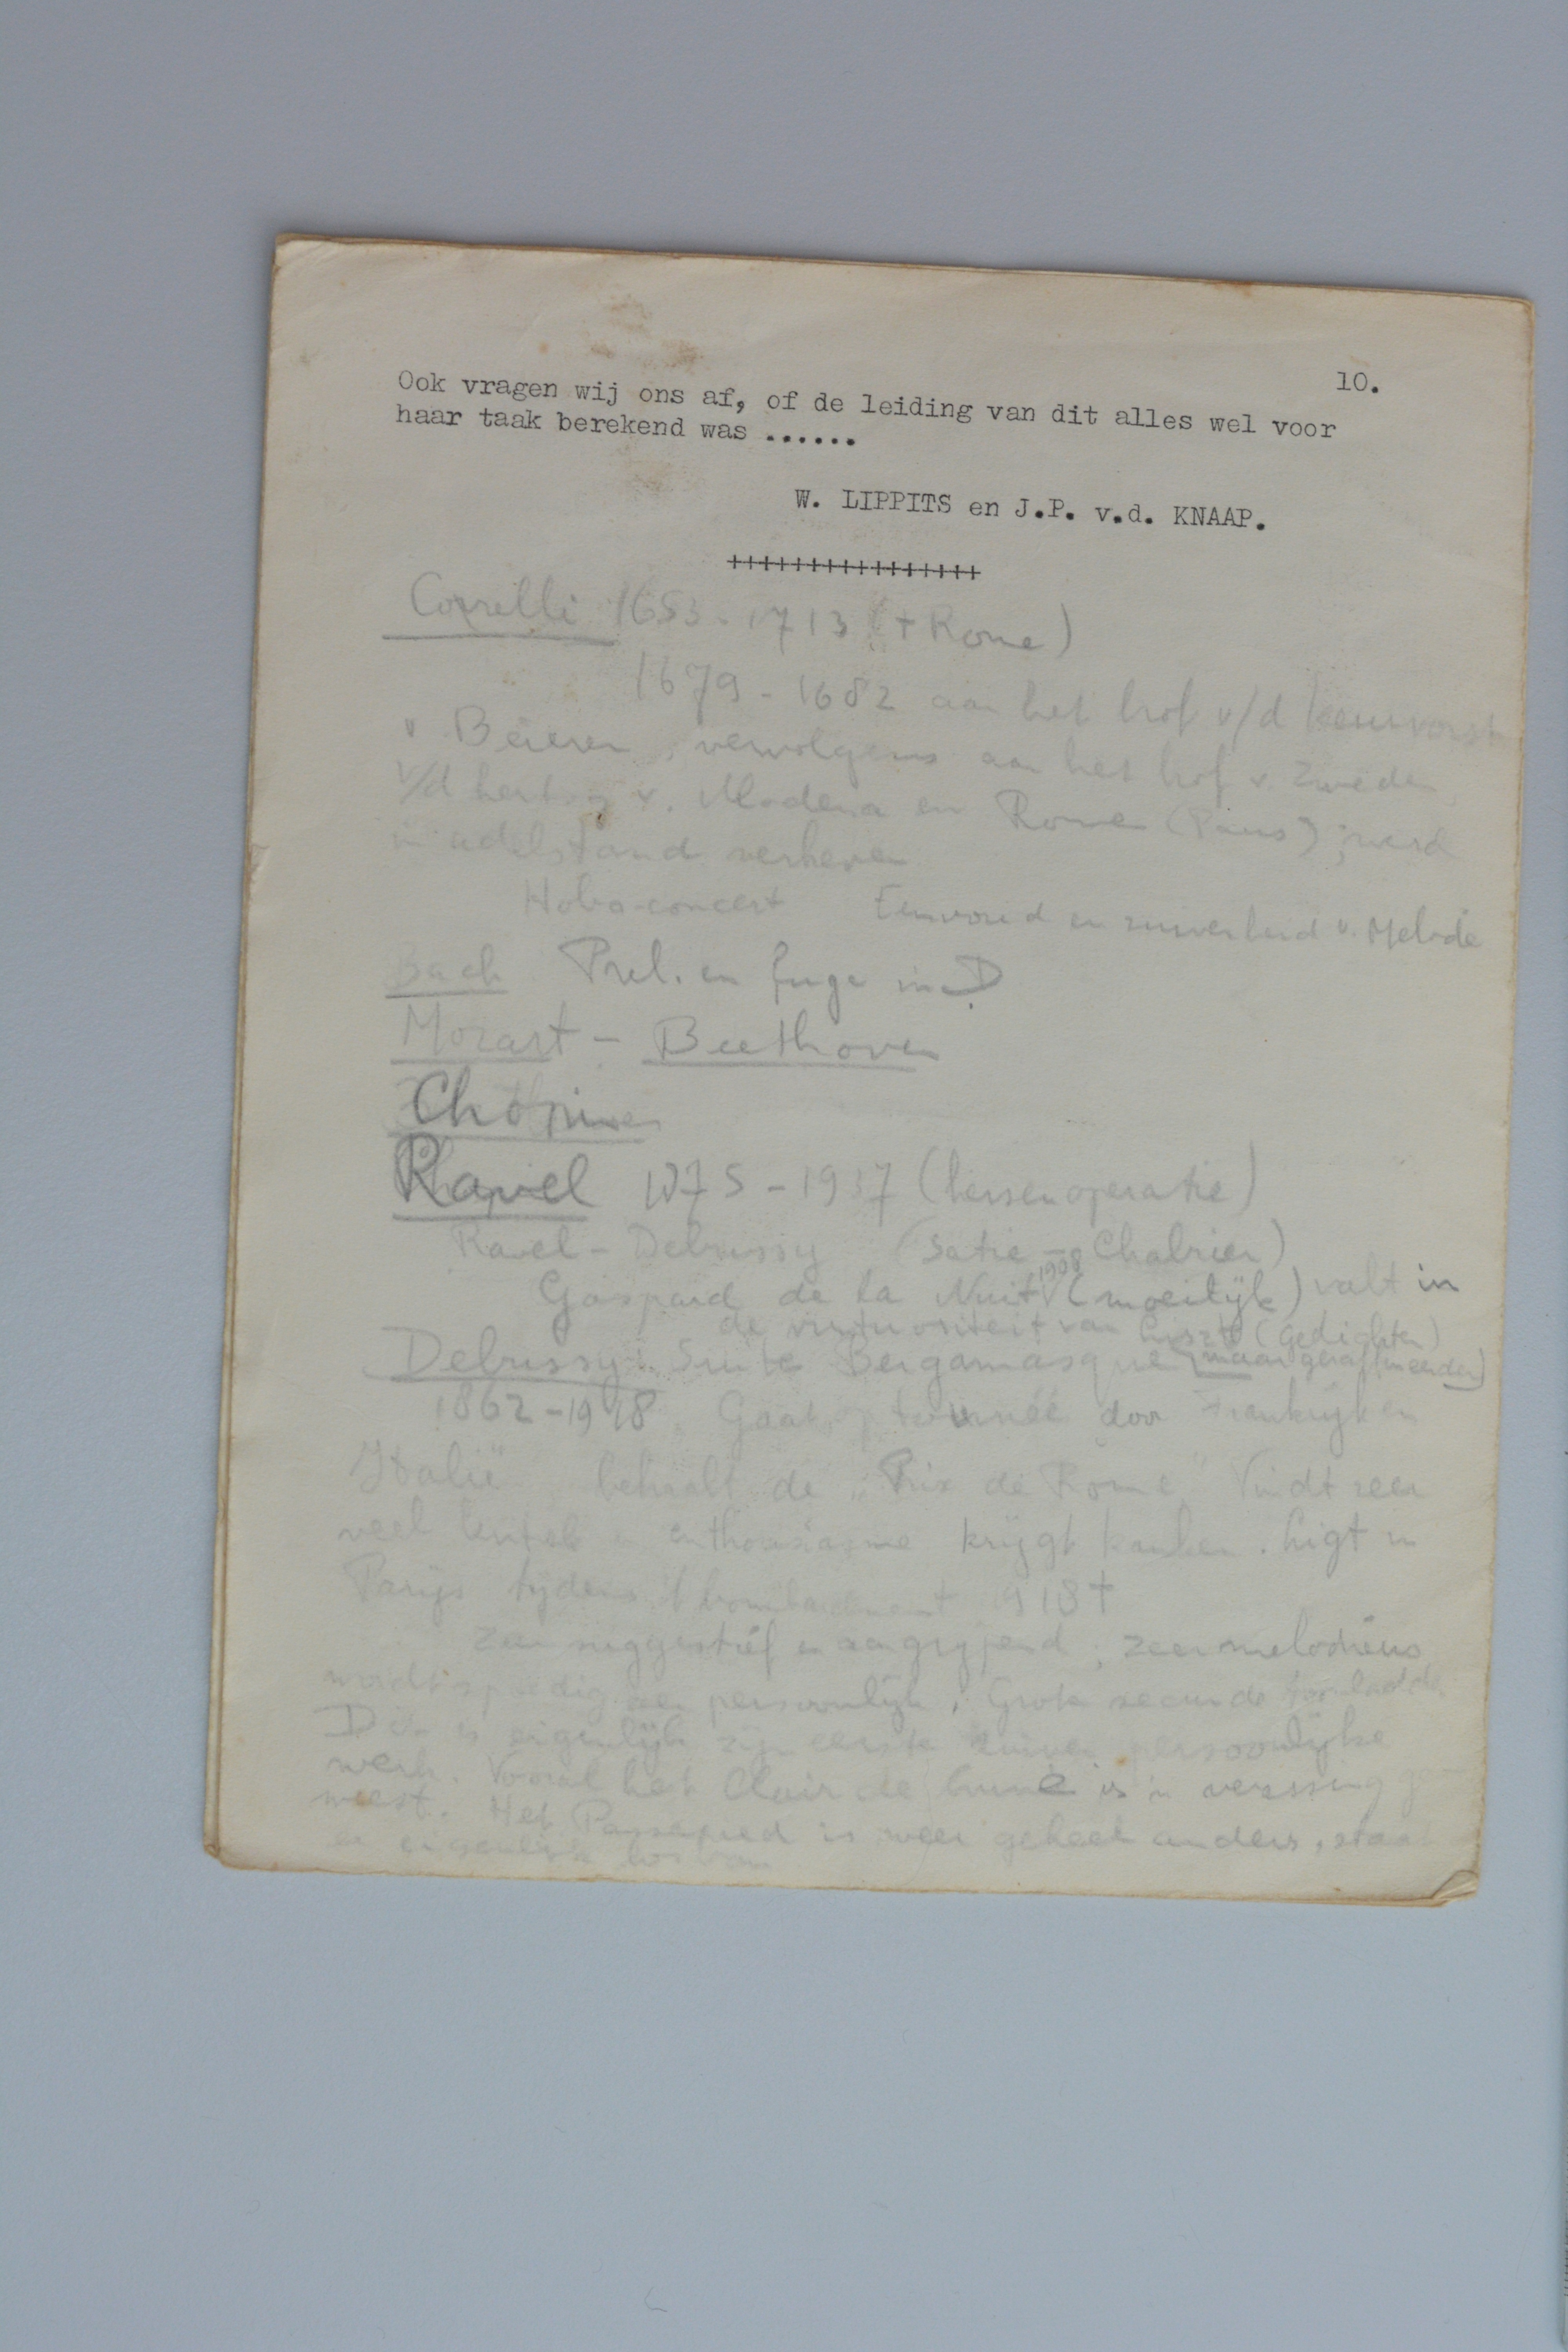 10.
Ook vragen wij ons af, of de leiding van dit alles wel voor
haar taak berekend was ......
W. LIPPITS en J.P. v.d. KNAAP.
++++++++++++++++
Correlli 1653-1713 († Rome)
1679-1682 aan het hof v/d keurvorst
v Beieren, vervolgens aan het hof v. Zweden
v/d hertog v. Modena en Rome (Paus); werd
in adelstand verheven
Hobo-concert Eenvoud en zuiverheid v. Melodie
Bach Prel. en fuge in D
Mozart - Beethoven
Chopin
Ravel 1875-1937 (hersenoperatie)
Ravel - Debussy (Satie - Chabrier)
Gaspard de la Nuit 1908 (moeilijk) valt in
de virtuositeit van Liszt (gedichten)
Debussy: Suite Bergamasque (maar geraffineerder)
1862-1918. Gaat op tournée door Frankrijk en
Italië behaalt de „Prix de Rome" Vindt zeer
veel enthousiasme krijgt kanker. Ligt in
Parijs tijdens 't bombardement 1918 †
Zeer suggestief en aangrijpend, zeer melodieus
wordt spoedig zeer persoonlijk. Grote secunde toonladder
Dit is eigenlijk zijn eerste zuiver persoonlijke
werk. Vooral het Clair de lune is 'n verassing ge-
weest. Het Passepied is weer geheel anders, staat
er eigenlijk los van